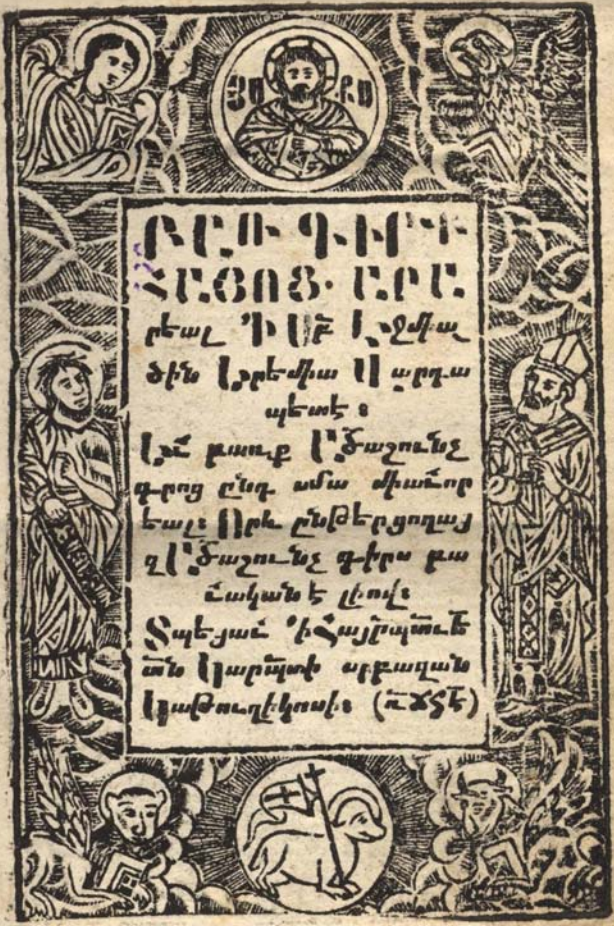 ՅՍ ՔՍ
ԲԱՌ ԳԻՐՔ
ՀԱՅՈՑ. ԱՐԱ
րեալ Ի Սբ Էջմիա
ծին Երեմիա Վարդա
պետէ ։
Եւ բառք Աճաշունչ
գրոց ընդ սմա միաւոր
եալ։ Որև ընթերցողաց
զԱճաշունչ գիրս բա
ւական է լիով։
Տպեցաւ ՚ի Հայրպտուե
ան Կարպտի սրբազան
Կաթուղիկոսի։ (ՌՃՂԷ)